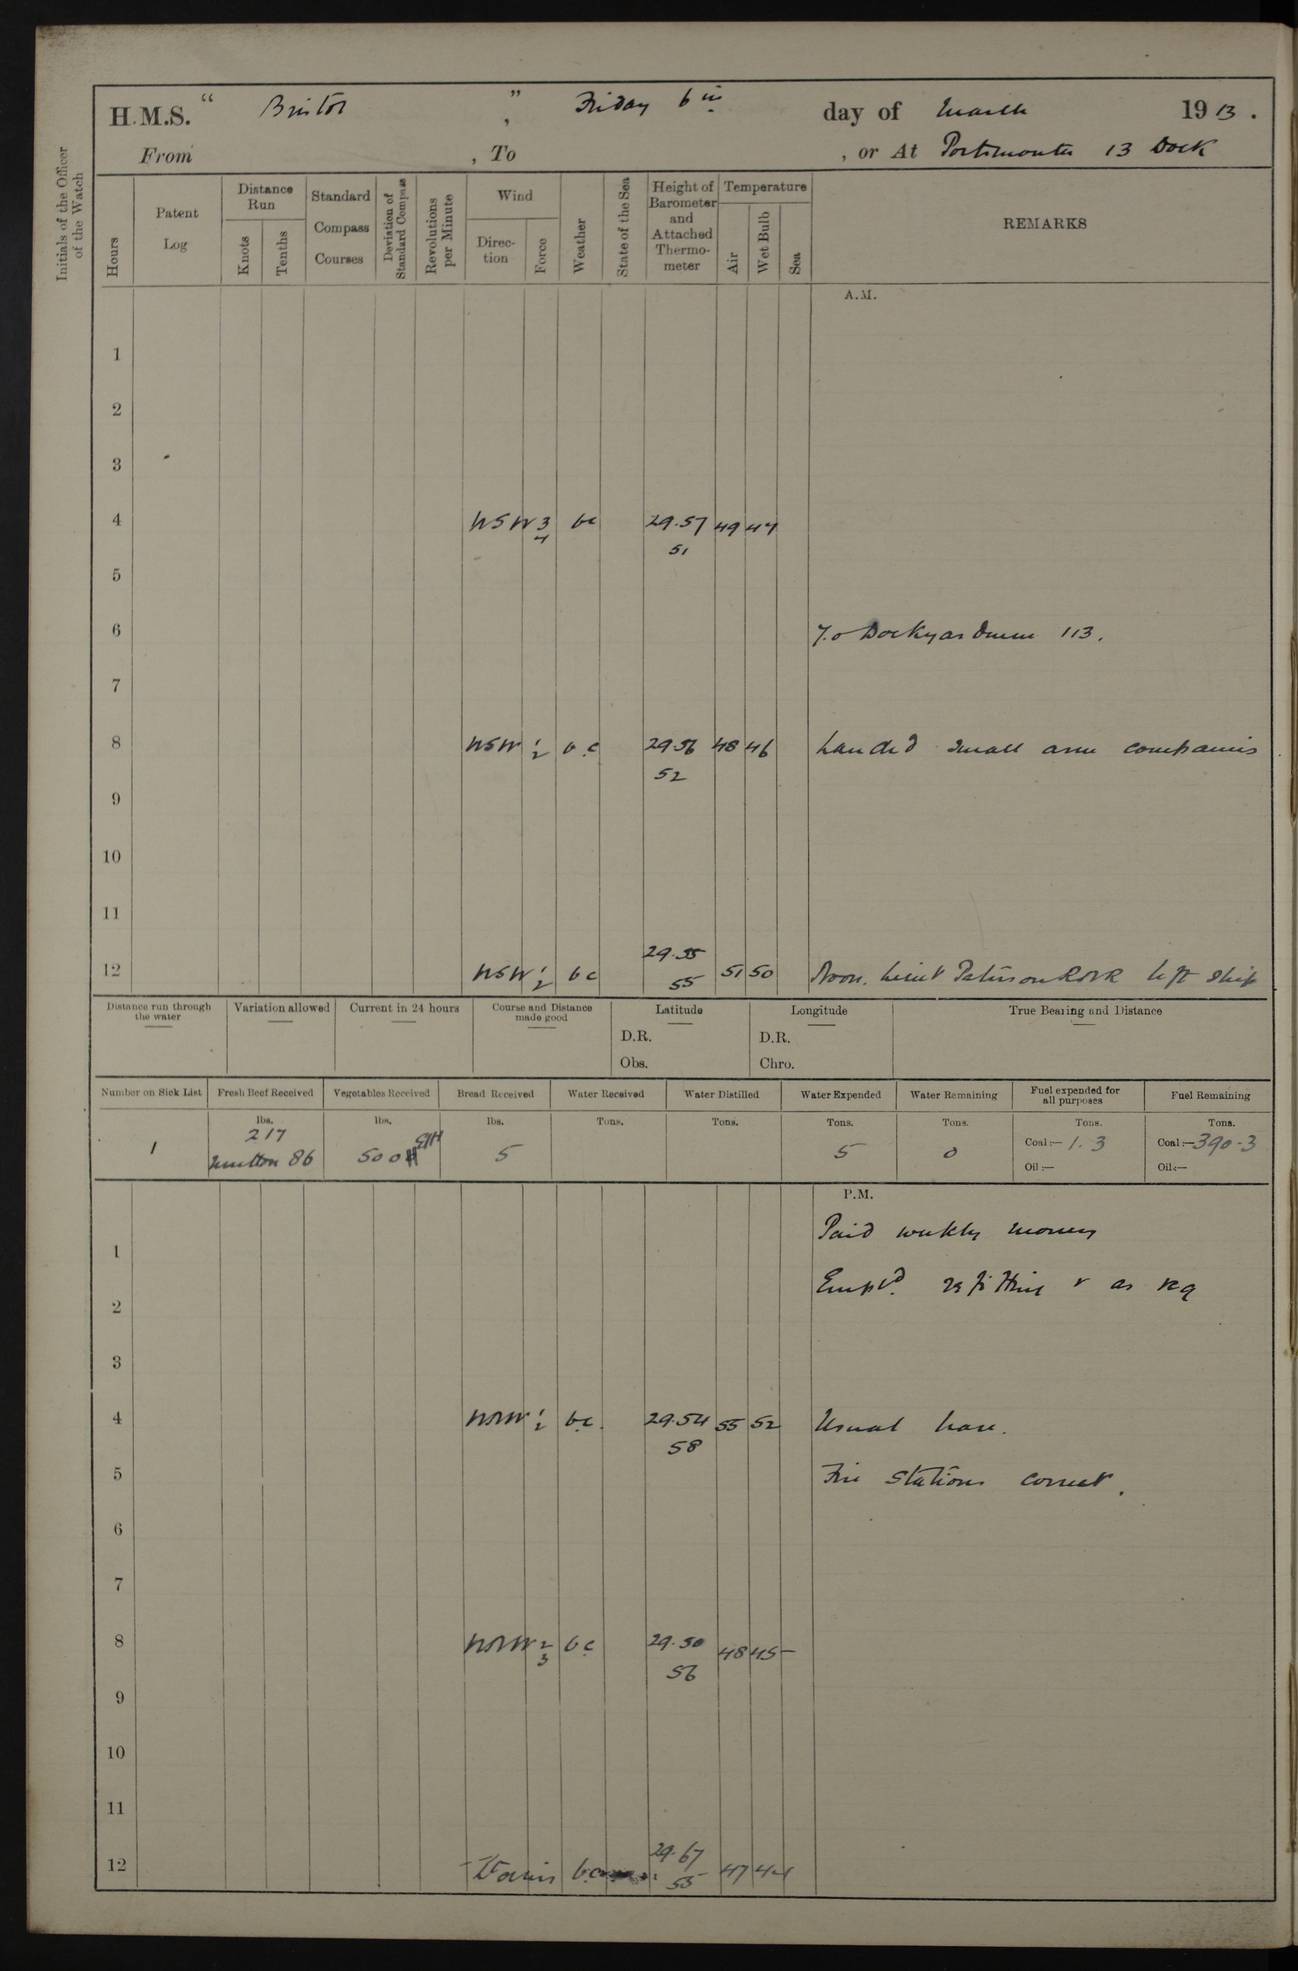 H.M.S. " Bristol " , Friday 6th day of March 1913.
From , To , or At Portsmouth 13 Dock
Initials of the Officer of the Watch
Hours
Patent Log
Distance Run
Knots
Tenths
Standard Compass Courses
Deviation of Standard Compass
Revolutions per Minute
Wind
Direc-tion
Force
Weather
State of the Sea
Height of Barometer and Attached Thermo-meter
Temperature
Air
Wet Bulb
Sea
REMARKS
A.M.
1
2
3
4 WSW 3 bc 29.57 49 47
4 51
5
6 7.0 Dockyardmen 113.
7
8 WSW 1 b.c 29.56 48 46 Landed small arm companies
2 52
9
10
11
29.55
12 WSW 1 bc 55 51 50 Noon. Lieut Paterson RNR left ship
2
Distance run through the water
Variation allowed
Current in 24 hours
Course and Distance made good
Latitude
D.R.
Obs.
Longitude
D.R.
Chro.
True Bearing and Distance
Number on Sick List
Fresh Beef Received
Vegetables Received
Bread Received
Water Received
Water Distilled
Water Expended
Water Remaining
Fuel expended for all purposes
Fuel Remaining
lbs. lbs. lbs. Tons. Tons. Tons. Tons. Tons. Tons.
1
217
mutton 86
500
5
5
0
Coal:— 1.3
Oil:—
Coal:— 390.3
Oil:—
P.M.
Paid weekly money
1
Empld. refitting & as req
2
3
4 WNW 1 b.c. 29.54 55 52 Usual leave.
2 58
5 Fire stations correct.
6
7
8 WNW 2 bc 29.50 48 45
3 56
9
10
11
29.67
12 b.c 55 47 44